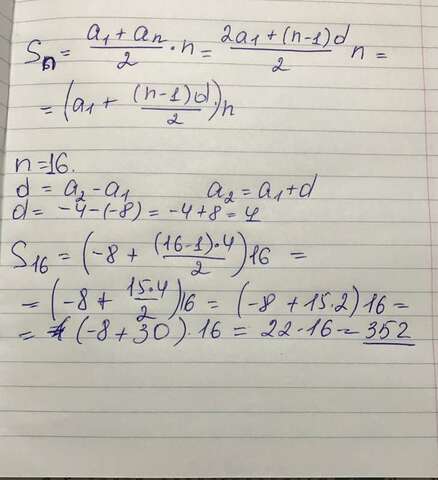 Sn = (a1 + an)/2 · n = (2a1 + (n-1)d)/2 n =
= (a1 + (n-1)d/2) n
n=16.
d = a2 - a1 a2 = a1 + d
d = -4-(-8) = -4+8 = 4
S16 = (-8 + (16-1)·4/2) 16 =
= (-8 + 15·4/2) 16 = (-8 + 15·2) 16 =
= (-8+30)·16 = 22·16 = 352